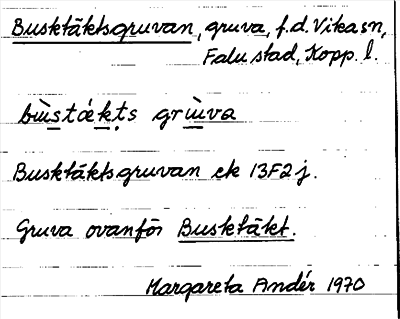 Busktäktsgruvan, gruva, f.d. Vika sn,
Falu stad, Kopp. l.
bùstäkts grùva
Busktäktsgruvan ek 13F2j.
Gruva ovanför Busktäkt.
Margareta Andér 1970